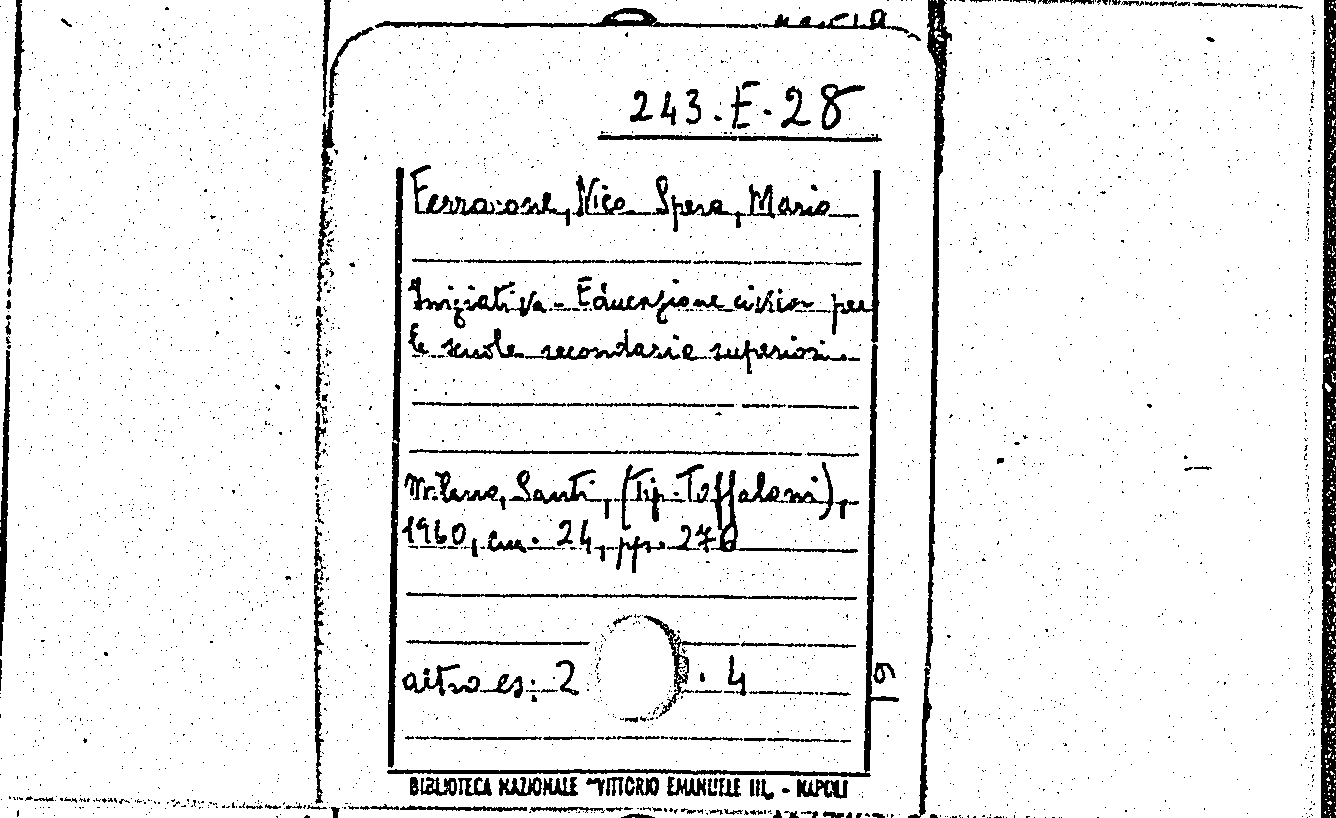 243.E.28
Ferraione, Nico Spera, Mario
Iniziativa - Educazione civica per
le scuole secondarie superiori.
Milano, Santi, (Tip. Toffaloni),
1960, cm. 24, pp. 270
altro es: 2 . 4
BIBLIOTECA NAZIONALE "VITTORIO EMANUELE III" - NAPOLI